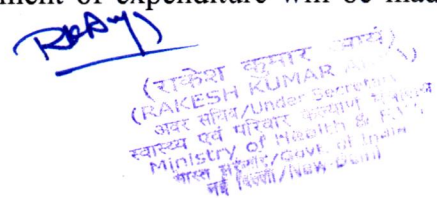 ment of expenditure will be mad
(राकेश कुमार आर्य)
(RAKESH KUMAR
अवर सचिव/Under Secretary
स्वास्थ्य एवं परिवार कल्याण मंत्रालय
Ministry of Health & F.W.
भारत सरकार/Govt. of India
नई दिल्ली/New Delhi